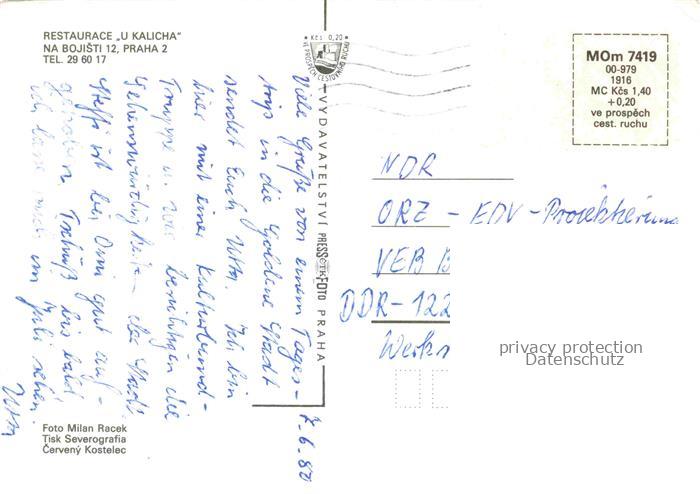 RESTAURACE „U KALICHA“
NA BOJIŠTI 12, PRAHA 2
TEL. 29 60 17
Kčs 0,20
VE PROSPĚCH CESTOVNÍHO RUCHU
MOm 7419
00-979
1916
MC Kčs 1,40
+0,20
ve prospěch
cest. ruchu
Viele Grüße von einem Tages-
trip in die Goldene Stadt
sendet Euch Utta. Ich bin
hier mit einer Kulturbund-
Truppe u. wir besichtigen die
Sehenswürdigkeiten der Stadt.
Steffi ist bei Omi gut auf-
gehoben. Tschüß bis bald
im Juli sehen.
Utta
7.6.80
VYDAVATELSTVÍ PRESSFOTO PRAHA
NDR
ORZ - EDV - Projektierung
VEB B
DDR-122
Werks
privacy protection
Datenschutz
Foto Milan Racek
Tisk Severografia
Červený Kostelec